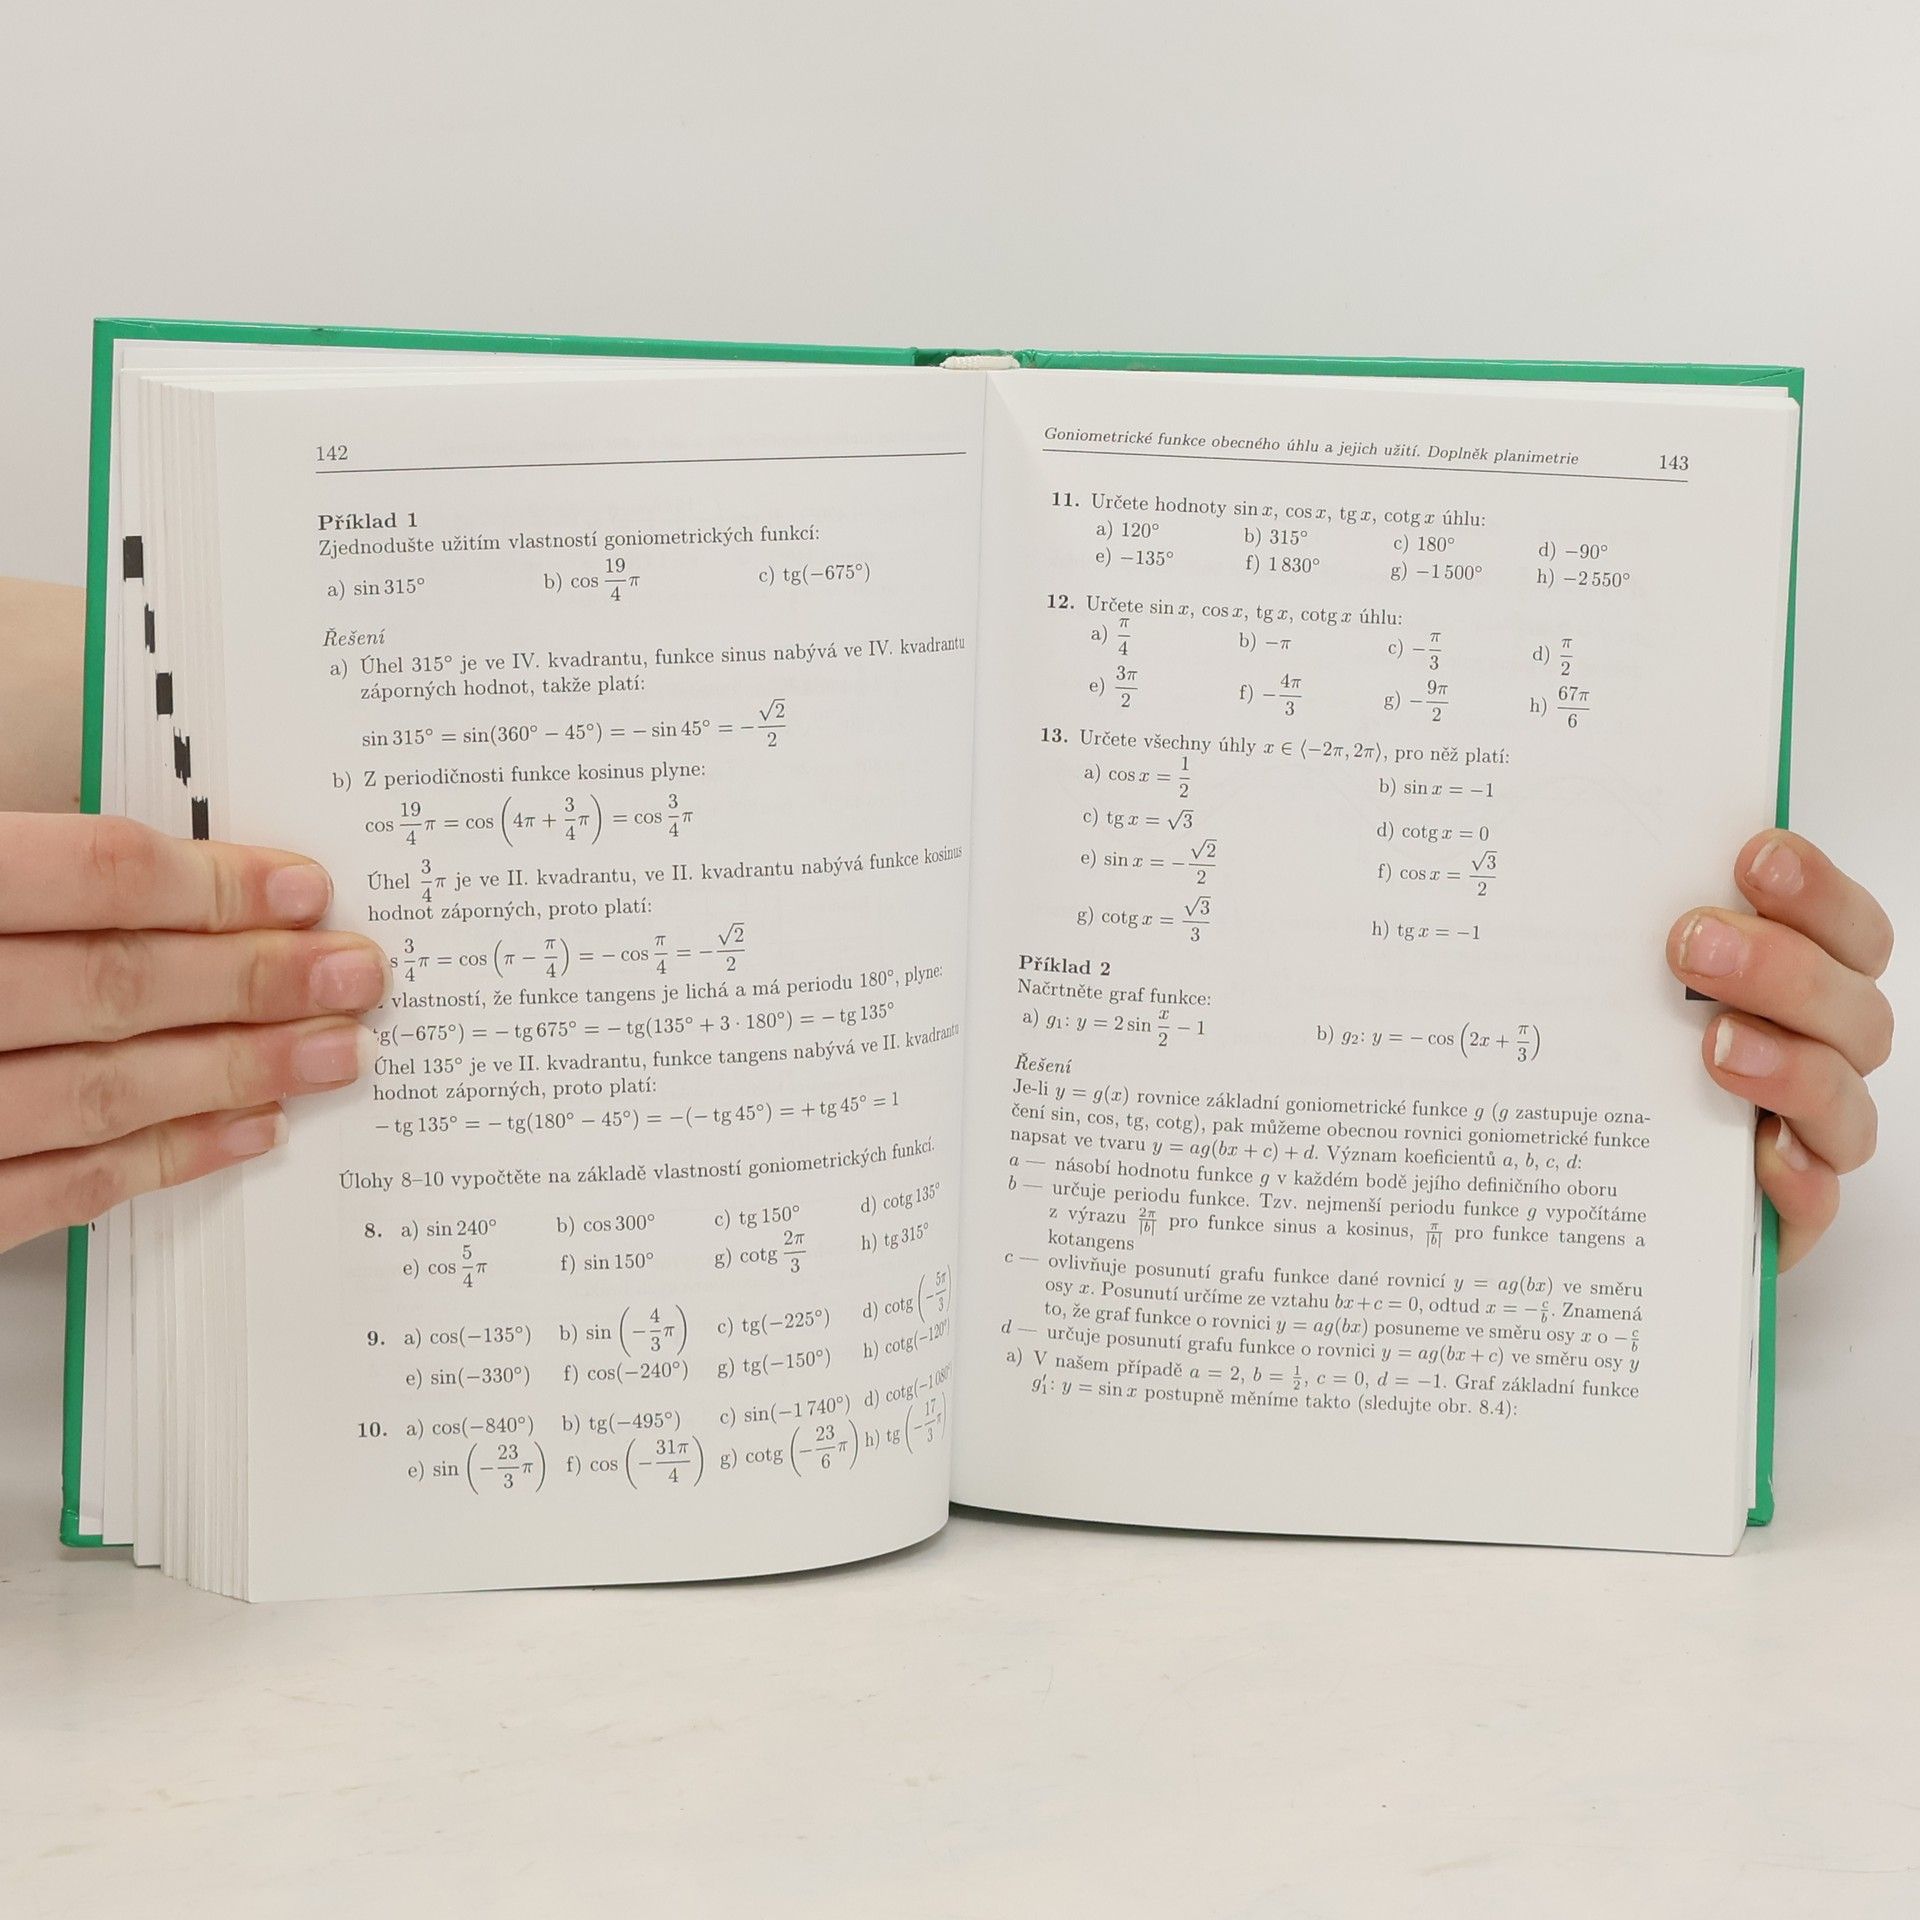 142
Příklad 1
Zjednodušte užitím vlastností goniometrických funkcí:
a) sin 315° b) cos 19/4 π c) tg(−675°)
Řešení
a) Úhel 315° je ve IV. kvadrantu, funkce sinus nabývá ve IV. kvadrantu
záporných hodnot, takže platí:
sin 315° = sin(360° − 45°) = − sin 45° = − √2/2
b) Z periodičnosti funkce kosinus plyne:
cos 19/4 π = cos (4π + 3/4 π) = cos 3/4 π
Úhel 3/4 π je ve II. kvadrantu, ve II. kvadrantu nabývá funkce kosinus
hodnot záporných, proto platí:
s 3/4 π = cos (π − π/4) = − cos π/4 = − √2/2
vlastností, že funkce tangens je lichá a má periodu 180°, plyne:
tg(−675°) = − tg 675° = − tg(135° + 3 · 180°) = − tg 135°
Úhel 135° je ve II. kvadrantu, funkce tangens nabývá ve II. kvadrantu
hodnot záporných, proto platí:
− tg 135° = − tg(180° − 45°) = −(− tg 45°) = + tg 45° = 1
Úlohy 8–10 vypočtěte na základě vlastností goniometrických funkcí.
8. a) sin 240° b) cos 300° c) tg 150° d) cotg 135°
e) cos 5/4 π f) sin 150° g) cotg 2π/3 h) tg 315°
9. a) cos(−135°) b) sin (− 4/3 π) c) tg(−225°) d) cotg (− 5π/3)
e) sin(−330°) f) cos(−240°) g) tg(−150°) h) cotg(−120°)
10. a) cos(−840°) b) tg(−495°) c) sin(−1 740°) d) cotg(−1 080°)
e) sin (− 23/3 π) f) cos (− 31π/4) g) cotg (− 23/6 π) h) tg (− 17/3 π)
Goniometrické funkce obecného úhlu a jejich užití. Doplněk planimetrie 143
11. Určete hodnoty sin x, cos x, tg x, cotg x úhlu:
a) 120° b) 315° c) 180° d) −90°
e) −135° f) 1 830° g) −1 500° h) −2 550°
12. Určete sin x, cos x, tg x, cotg x úhlu:
a) π/4 b) −π c) − π/3 d) π/2
e) 3π/2 f) − 4π/3 g) − 9π/2 h) 67π/6
13. Určete všechny úhly x ∈ ⟨−2π, 2π⟩, pro něž platí:
a) cos x = 1/2 b) sin x = −1
c) tg x = √3 d) cotg x = 0
e) sin x = − √2/2 f) cos x = √3/2
g) cotg x = √3/3 h) tg x = −1
Příklad 2
Načrtněte graf funkce:
a) g₁: y = 2 sin x/2 − 1 b) g₂: y = − cos (2x + π/3)
Řešení
Je-li y = g(x) rovnice základní goniometrické funkce g (g zastupuje ozna-
čení sin, cos, tg, cotg), pak můžeme obecnou rovnici goniometrické funkce
napsat ve tvaru y = ag(bx + c) + d. Význam koeficientů a, b, c, d:
a — násobí hodnotu funkce g v každém bodě jejího definičního oboru
b — určuje periodu funkce. Tzv. nejmenší periodu funkce g vypočítáme
z výrazu 2π/|b| pro funkce sinus a kosinus, π/|b| pro funkce tangens a
kotangens
c — ovlivňuje posunutí grafu funkce dané rovnicí y = ag(bx) ve směru
osy x. Posunutí určíme ze vztahu bx + c = 0, odtud x = − c/b. Znamená
to, že graf funkce o rovnici y = ag(bx) posuneme ve směru osy x o − c/b
d — určuje posunutí grafu funkce o rovnici y = ag(bx + c) ve směru osy y
a) V našem případě a = 2, b = 1/2, c = 0, d = −1. Graf základní funkce
g′₁: y = sin x postupně měníme takto (sledujte obr. 8.4):